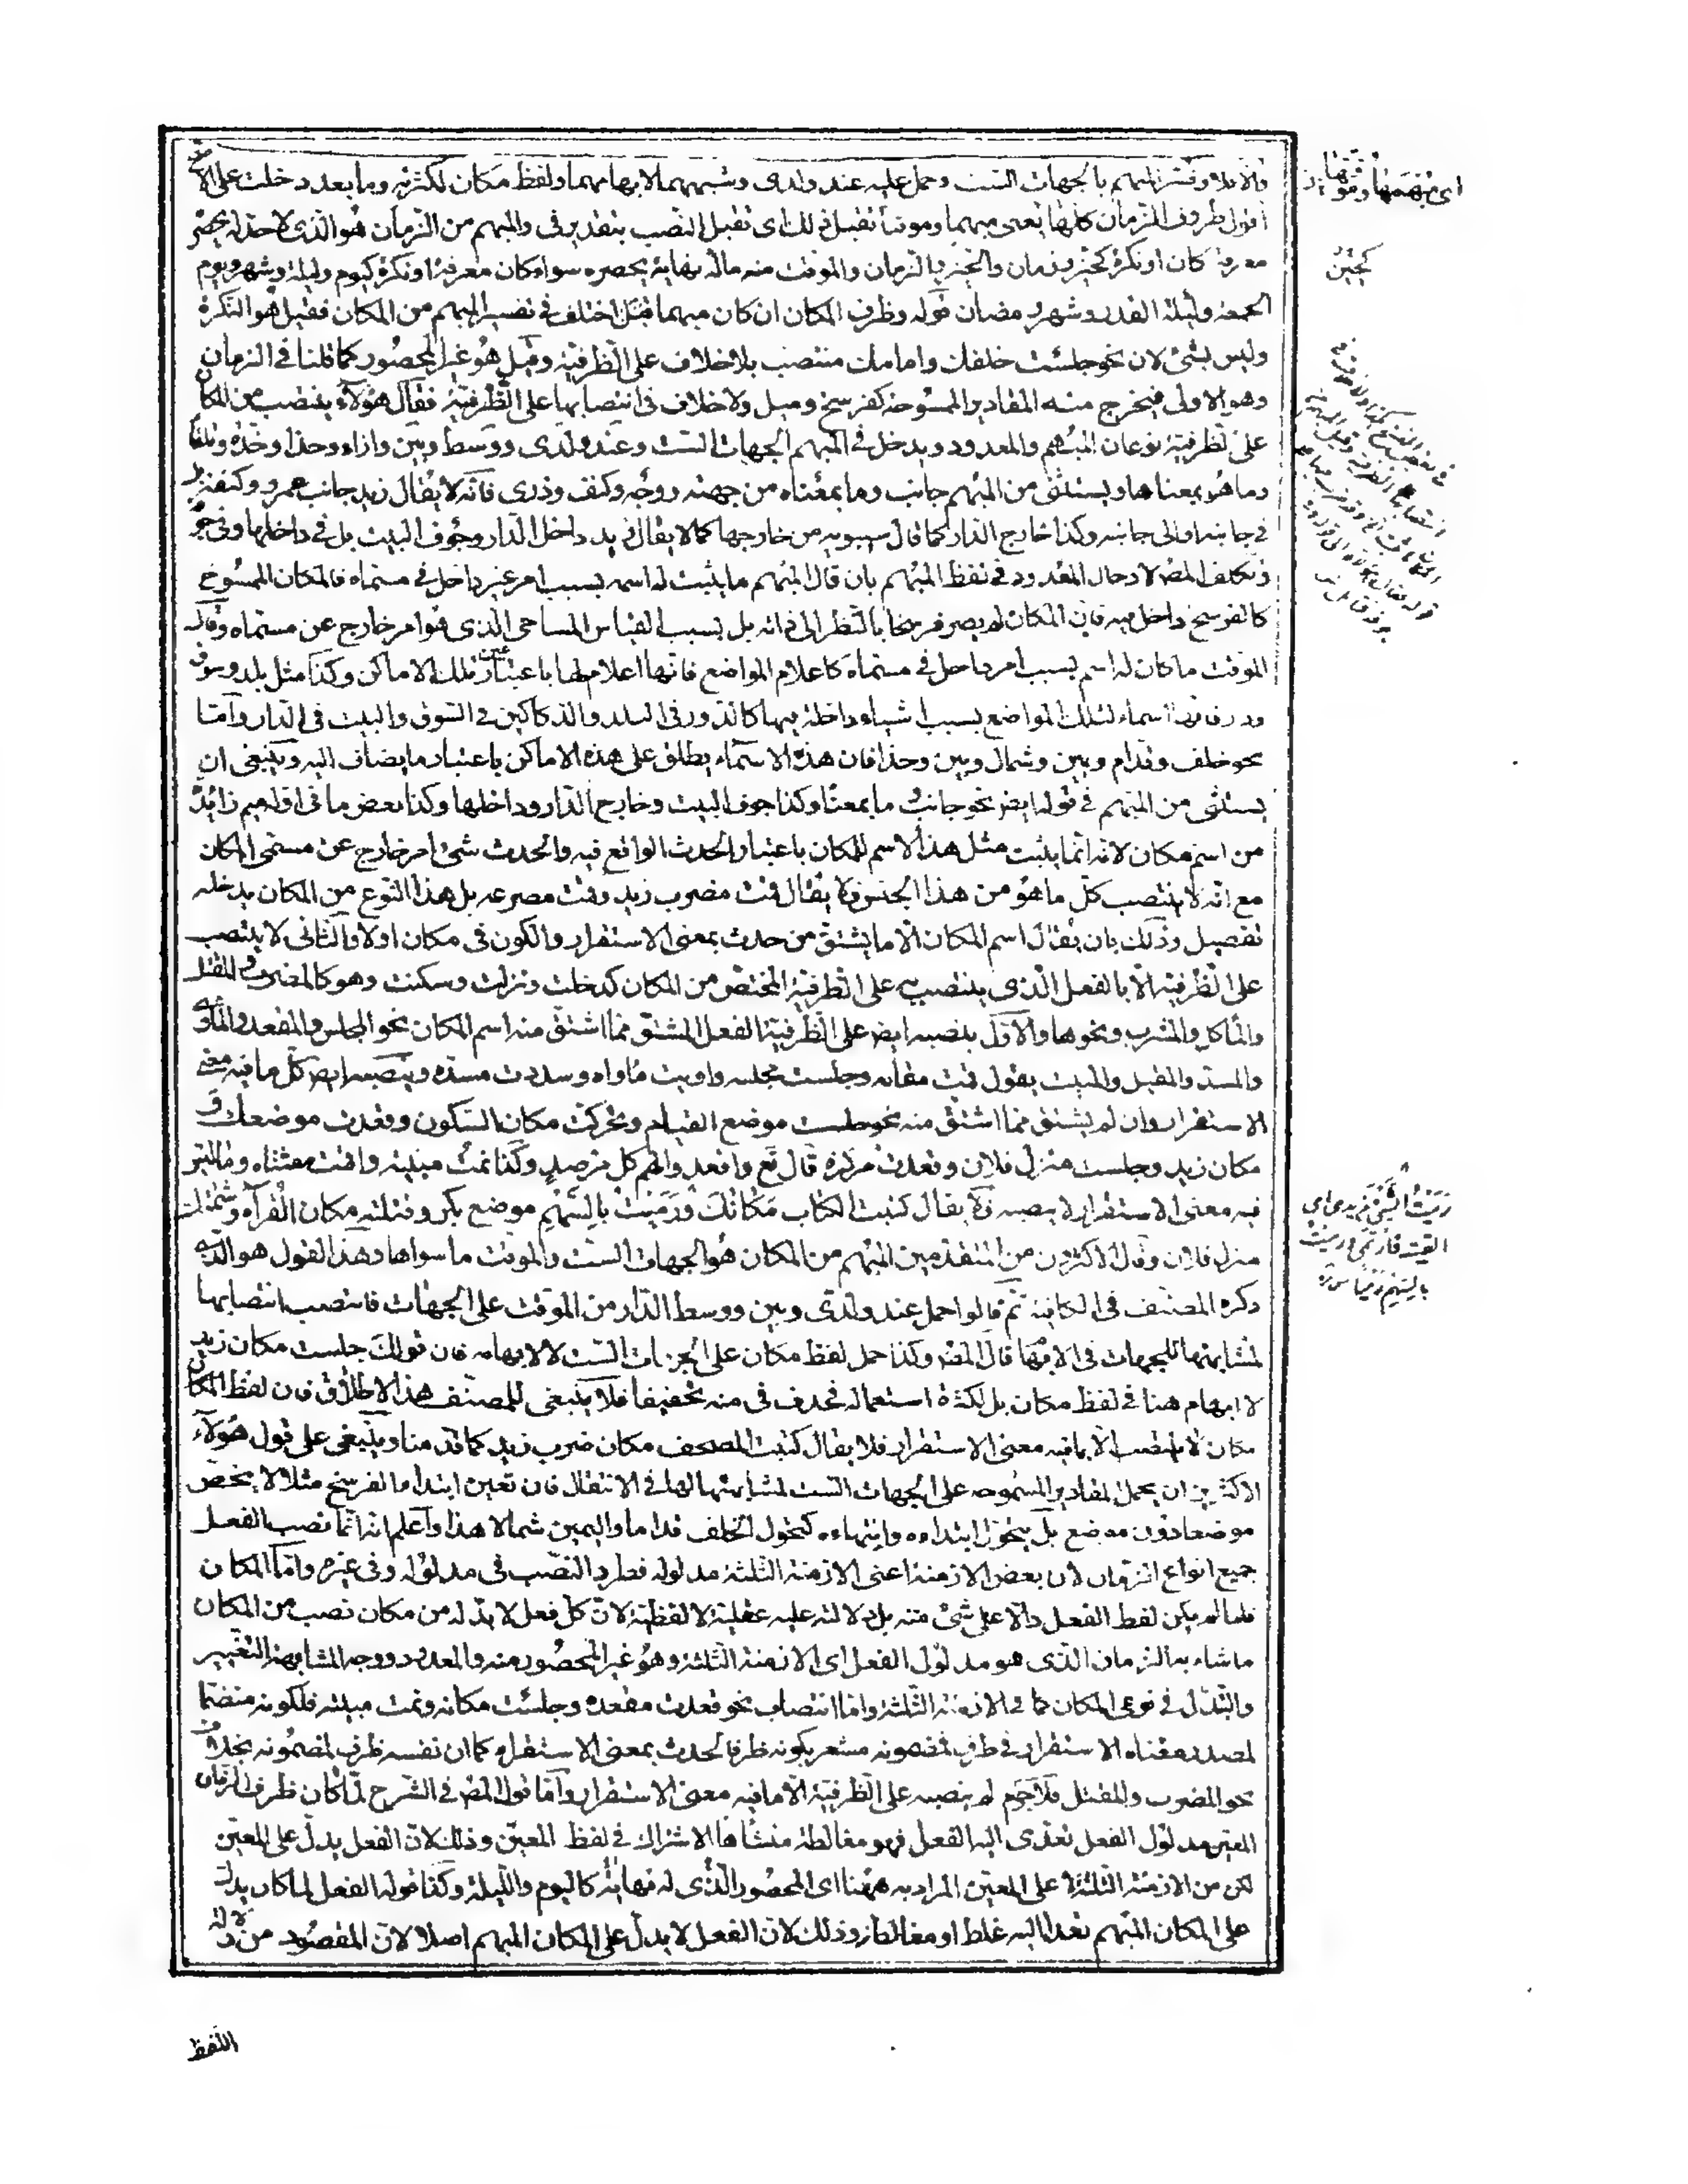 والا فلا وفسّر المبهم بالجهات الست وحمل عليه عند ولدى وشبههما لابهامهما ولفظ مكان لكثرته وما بعد دخلت على الاصح
أقول ظروف الزمان كلها يعنى مبهما وموقتا تقبل ذلك اى تقبل النصب بتقدير فى والمبهم من الزمان هو الذى لا حد له يحصره
معرفة كان او نكرة كحين وزمان والحين والزمان والموقت منه ماله نهاية تحصره سواء كان معرفة او نكرة كيوم وليلة وشهر ويوم
الجمعة وليلة القدر وشهر رمضان قوله وظرف المكان ان كان مبهما قبل اختلف فى تفسير المبهم من المكان فقيل هو النكرة
وليس بشئ لان نحو جلست خلفك وامامك منتصب بلا خلاف على الظرفية وقيل هو غير المحصور كما قلنا فى الزمان
وهو الاولى فيخرج منه المقادير الممسوحة كفرسخ وميل ولا خلاف فى انتصابها على الظرفية فقال هؤلاء ينتصب من المكان
على الظرفية نوعان المبهم والمعدود ويدخل فى المبهم الجهات الست وعند ولدى ووسط وبين وازاء وحذاء وحذة وتلقاء
وما هو بمعناها ويستثنى من المبهم جانب وما بمعناه من جهة ووجه وكنف وذرى فانه لا يقال زيد جانب عمرو وكنفه بل
فى جانبه او الى جانبه وكذا خارج الدار كما قال سيبويه من خارجها كما لا يقال زيد داخل الدار وجوف البيت بل فى داخلها وفى جوفه
وتكلف المص لادخال المعدود فى لفظ المبهم بان قال المبهم ما يثبت له اسمه بسبب امر غير داخل فى مسماه فالمكان الممسوح
كالفرسخ داخل فيه فان المكان لم يصر فرسخا بالنظر الى ذاته بل بسبب القياس المساحى الذى هو امر خارج عن مسماه وقال
الموقت ما كان له اسم بسبب امر داخل فى مسماه كاعلام المواضع فانها اعلام لها باعتبار عين تلك الاماكن وكذا مثل بلد وسوق
ودار فانها اسماء لتلك المواضع بسبب اشياء داخلة فيها كالدور فى البلد والدكاكين فى السوق والبيت فى الدار وامّا
نحو خلف وقدام ويمين وشمال وبين وحذاء فان هذه الاسماء يطلق على هذه الاماكن باعتبار ما يضاف اليه وينبغى ان
يستثنى من المبهم فى قوله ايض نحو جانب وما بمعناه وكذا جوف البيت وخارج الدار وداخلها وكذا بعض ما فى اوله ميم زائدة
من اسم مكان لانه انما يثبت مثل هذا الاسم للمكان باعتبار الحدث الواقع فيه والحدث شئ امر خارج عن مسمى المكان
مع انه لا ينتصب كل ما هو من هذا الجنس فلا يقال قمت مضرب زيد وقمت مصرعه بل هذا النوع من المكان يدخله
تفصيل وذلك بان يقال اسم المكان امّا يشتق من حدث بمعنى الاستقرار والكون فى مكان اولا والثانى لا ينتصب
على الظرفية الا بالفعل الذى ينتصب به على الظرفية المختص من المكان كدخلت ونزلت وسكنت وهو كالمضرب والمقتل
والمأكل والمشرب ونحوها والاول ينصبه ايض على الظرفية الفعل المشتق مما اشتق منه اسم المكان نحو المجلس والمقعد والمأوى
والمسد والمقيل والمبيت يقول قمت مقامه وجلست مجلسه واويت مأواه وسددت مسده وينصبه ايض كل ما فيه معنى
الاستقرار وان لم يشتق مما اشتق منه نحو جلست موضع القيام وتحركت مكان السكون وقعدت موضعك و
مكان زيد وجلست منزل فلان وقعدت مركزه قال تع واقعدوا لهم كل مرصد وكذا نمت مبيته واقمت مشتاه وما ليس
فيه معنى الاستقرار لا ينصبه فلا يقال كتبت الكتاب مكانك ورميت بالسهم موضع بكر وقتلته مكان القرآءة وشتمتك
منزل فلان وقال الاكثرون من المتقدمين المبهم من المكان هو الجهات الست والموقت ما سواها وهذا القول هو الذى
ذكره المصنف فى الكافية ثم قالوا حمل عند ولدى وبين ووسط الدار من الموقت على الجهات فانتصب انتصابها
لمشابهتها للجهات فى الابهام قال المص وكذا حمل لفظ مكان على الجهات الست لا لابهامه فان قولك جلست مكان زيد
لا ابهام هنا فى لفظ مكان بل لكثرة استعماله فحذف فى منه تخفيفا فلا ينبغى للمصنف هذا الاطلاق فان لفظ المكان
مكان لا ينتصب الا بما فيه معنى الاستقرار فلا يقال كتبت المصحف مكان ضرب زيد كما قدمنا وينبغى على قول هؤلاء
الاكثرين ان يحمل المقادير الممسوحة على الجهات الست لمشابهتها لها فى الانتقال فان تعيين ابتداء الفرسخ مثلا لا يختص
موضعا دون موضع بل يتحول ابتداءه وانتهاءه كتحول الخلف قداما واليمين شمالا هذا واعلم انه انما نصب الفعل
جميع انواع الزمان لان بعض الازمنة اعنى الازمنة الثلثة مدلوله فطرد النصب فى مدلوله وفى غيره وامّا المكان
فلما لم يكن لفظ الفعل دالا على شئ منه بل دلالته عليه عقلية لا لفظية لان كل فعل لا بد له من مكان نصب من المكان
ما شابه الزمان الذى هو مدلول الفعل اى الازمنة الثلثة وهو غير المحصور منه والمعدود ووجه المشابهة التغيير
والتبدل فى نوعى المكان كما فى الازمنة الثلثة وامّا انتصاب نحو قعدت مقعده وجلست مكانه ونمت مبيته فلكونه متضمنا
لمصدر معناه الاستقرار فى ظرف فمضمونه مشعر بكونه ظرفا لحدث بمعنى الاستقرار كما ان نفسه ظرف لمضمونه بخلاف
نحو المضرب والمقتل فلا جرم لم ينصبه على الظرفية الا ما فيه معنى الاستقرار وامّا قول المص فى الشرح لمّا كان ظرف الزمان
المعين مدلول الفعل تعدى اليه الفعل فهو مغالطة منشأها الاشتراك فى لفظ المعين وذلك لان الفعل يدل على المعين
لكن من الازمنة الثلثة لا على المعين المراد به ههنا اى المحصور الذى له نهاية كاليوم والليلة وكذا قوله الفعل لما كان يدل
على المكان المبهم تعدى اليه غلط او مغالطة وذلك لان الفعل لا يدل على المكان المبهم اصلا لان المقصود من دلالة
اللفظ
اى مبهمها وموقتها
كحين
رميت الشئ من يدى اى
القيت فارتمى ورميت
بالسهم رميا